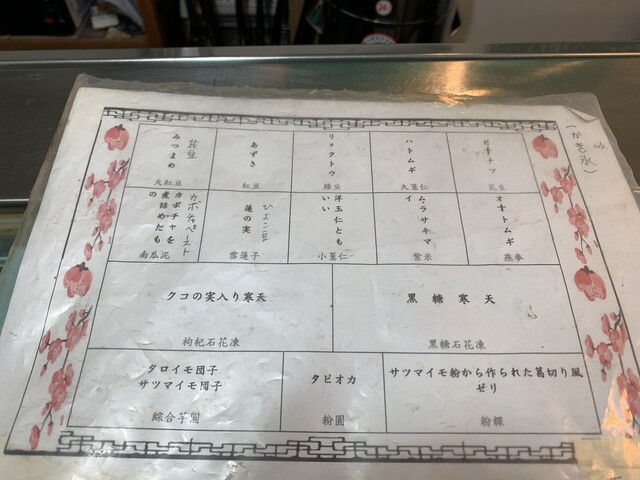 24
(かき氷)
冰
花豆
みつまめ
大紅豆
あずき
紅豆
リョクトウ
綠豆
ハトムギ
大薏仁
ピーナツ
花生
カボチャペースト
カボチャを
煮詰めたも
の
南瓜泥
ひよこ豆
蓮の実
雪蓮子
洋玉仁とも
いい
小薏仁
ムラサキマ
イ
紫米
オートムギ
燕麥
クコの実入り寒天
枸杞石花凍
黒糖寒天
黑糖石花凍
タロイモ団子
サツマイモ団子
綜合芋圓
タピオカ
粉圓
サツマイモ粉から作られた葛切り風
ゼリ
粉粿